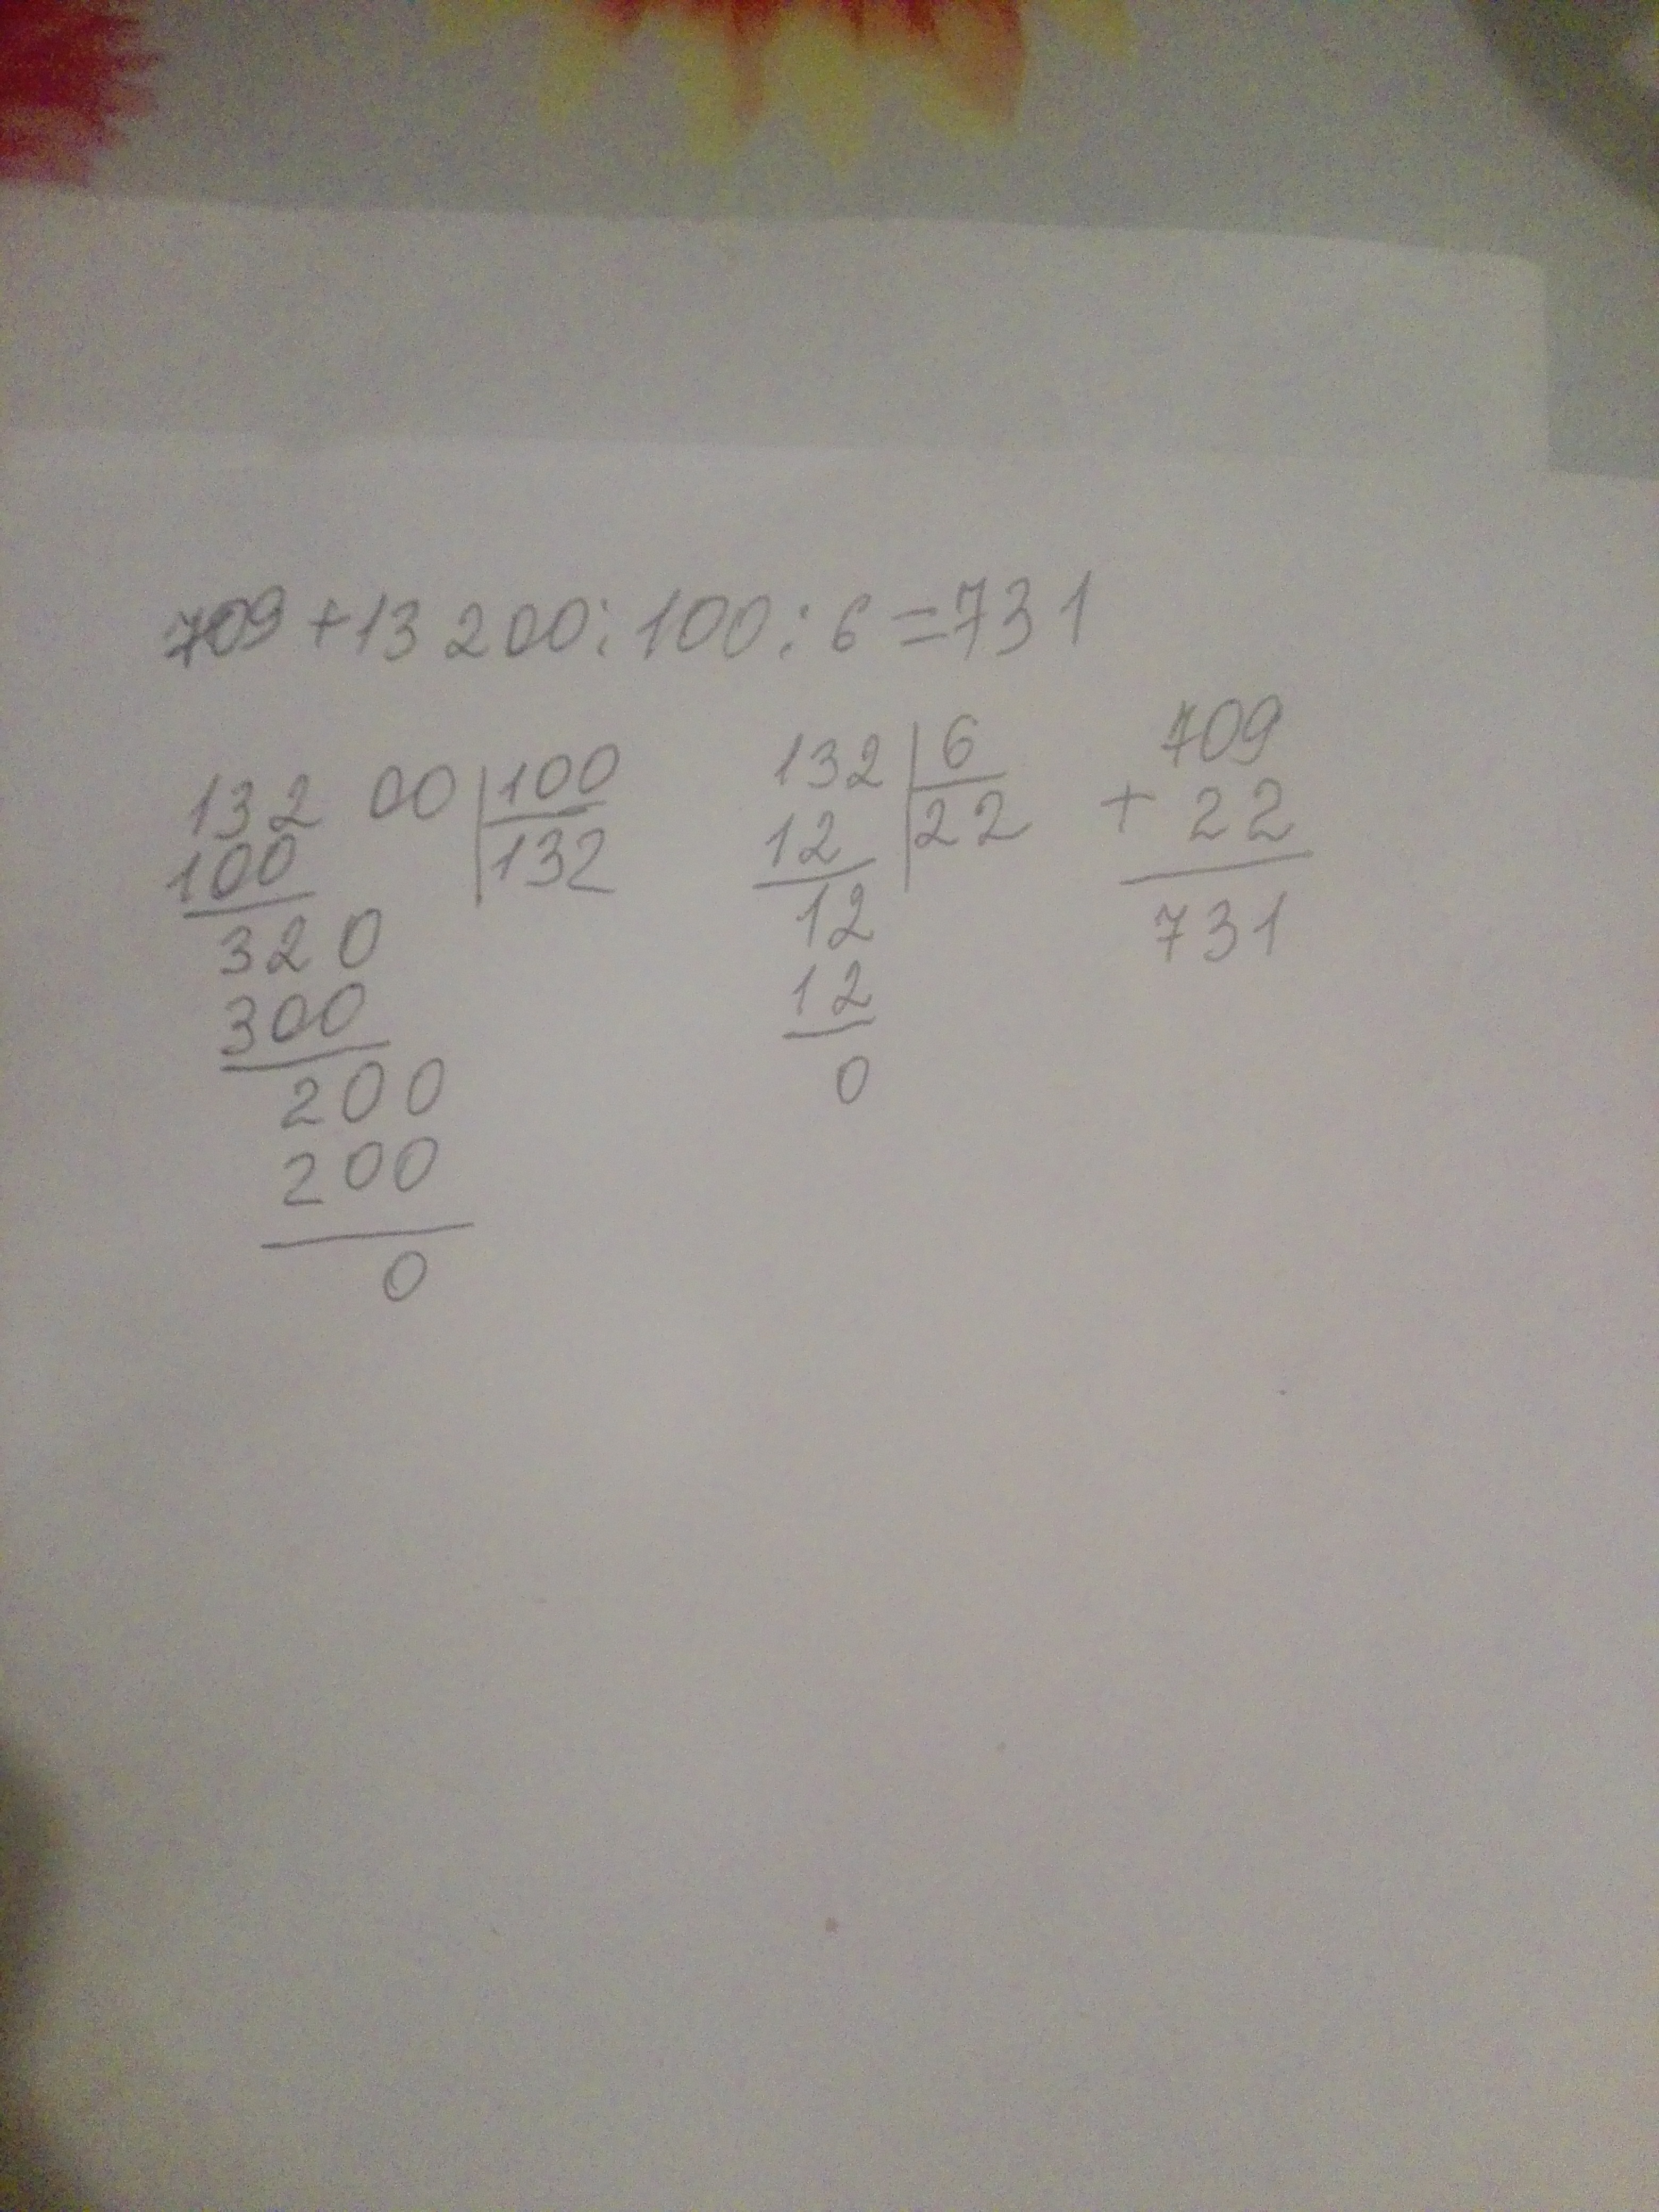 709+13 200:100:6=731
132 00|100
100 |132
320
300
200
200
0
132|6
12 |22
12
12
0
709
+ 22
731